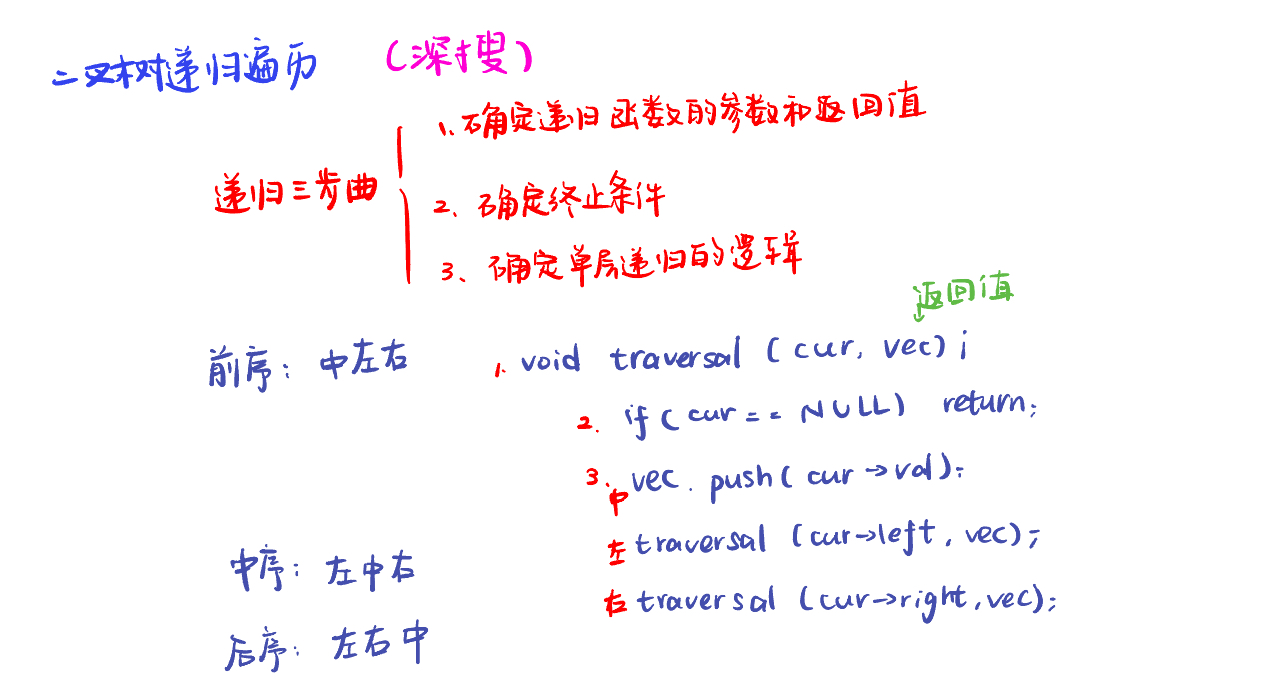 二叉树递归遍历 (深搜)
递归三步曲
1、确定递归函数的参数和返回值
2、确定终止条件
3、确定单层递归的逻辑
返回值
前序: 中左右
1. void traversal (cur, vec);
2. if (cur == NULL) return;
3. 中 vec. push (cur->val);
左 traversal (cur->left, vec);
右 traversal (cur->right, vec);
中序: 左中右
后序: 左右中